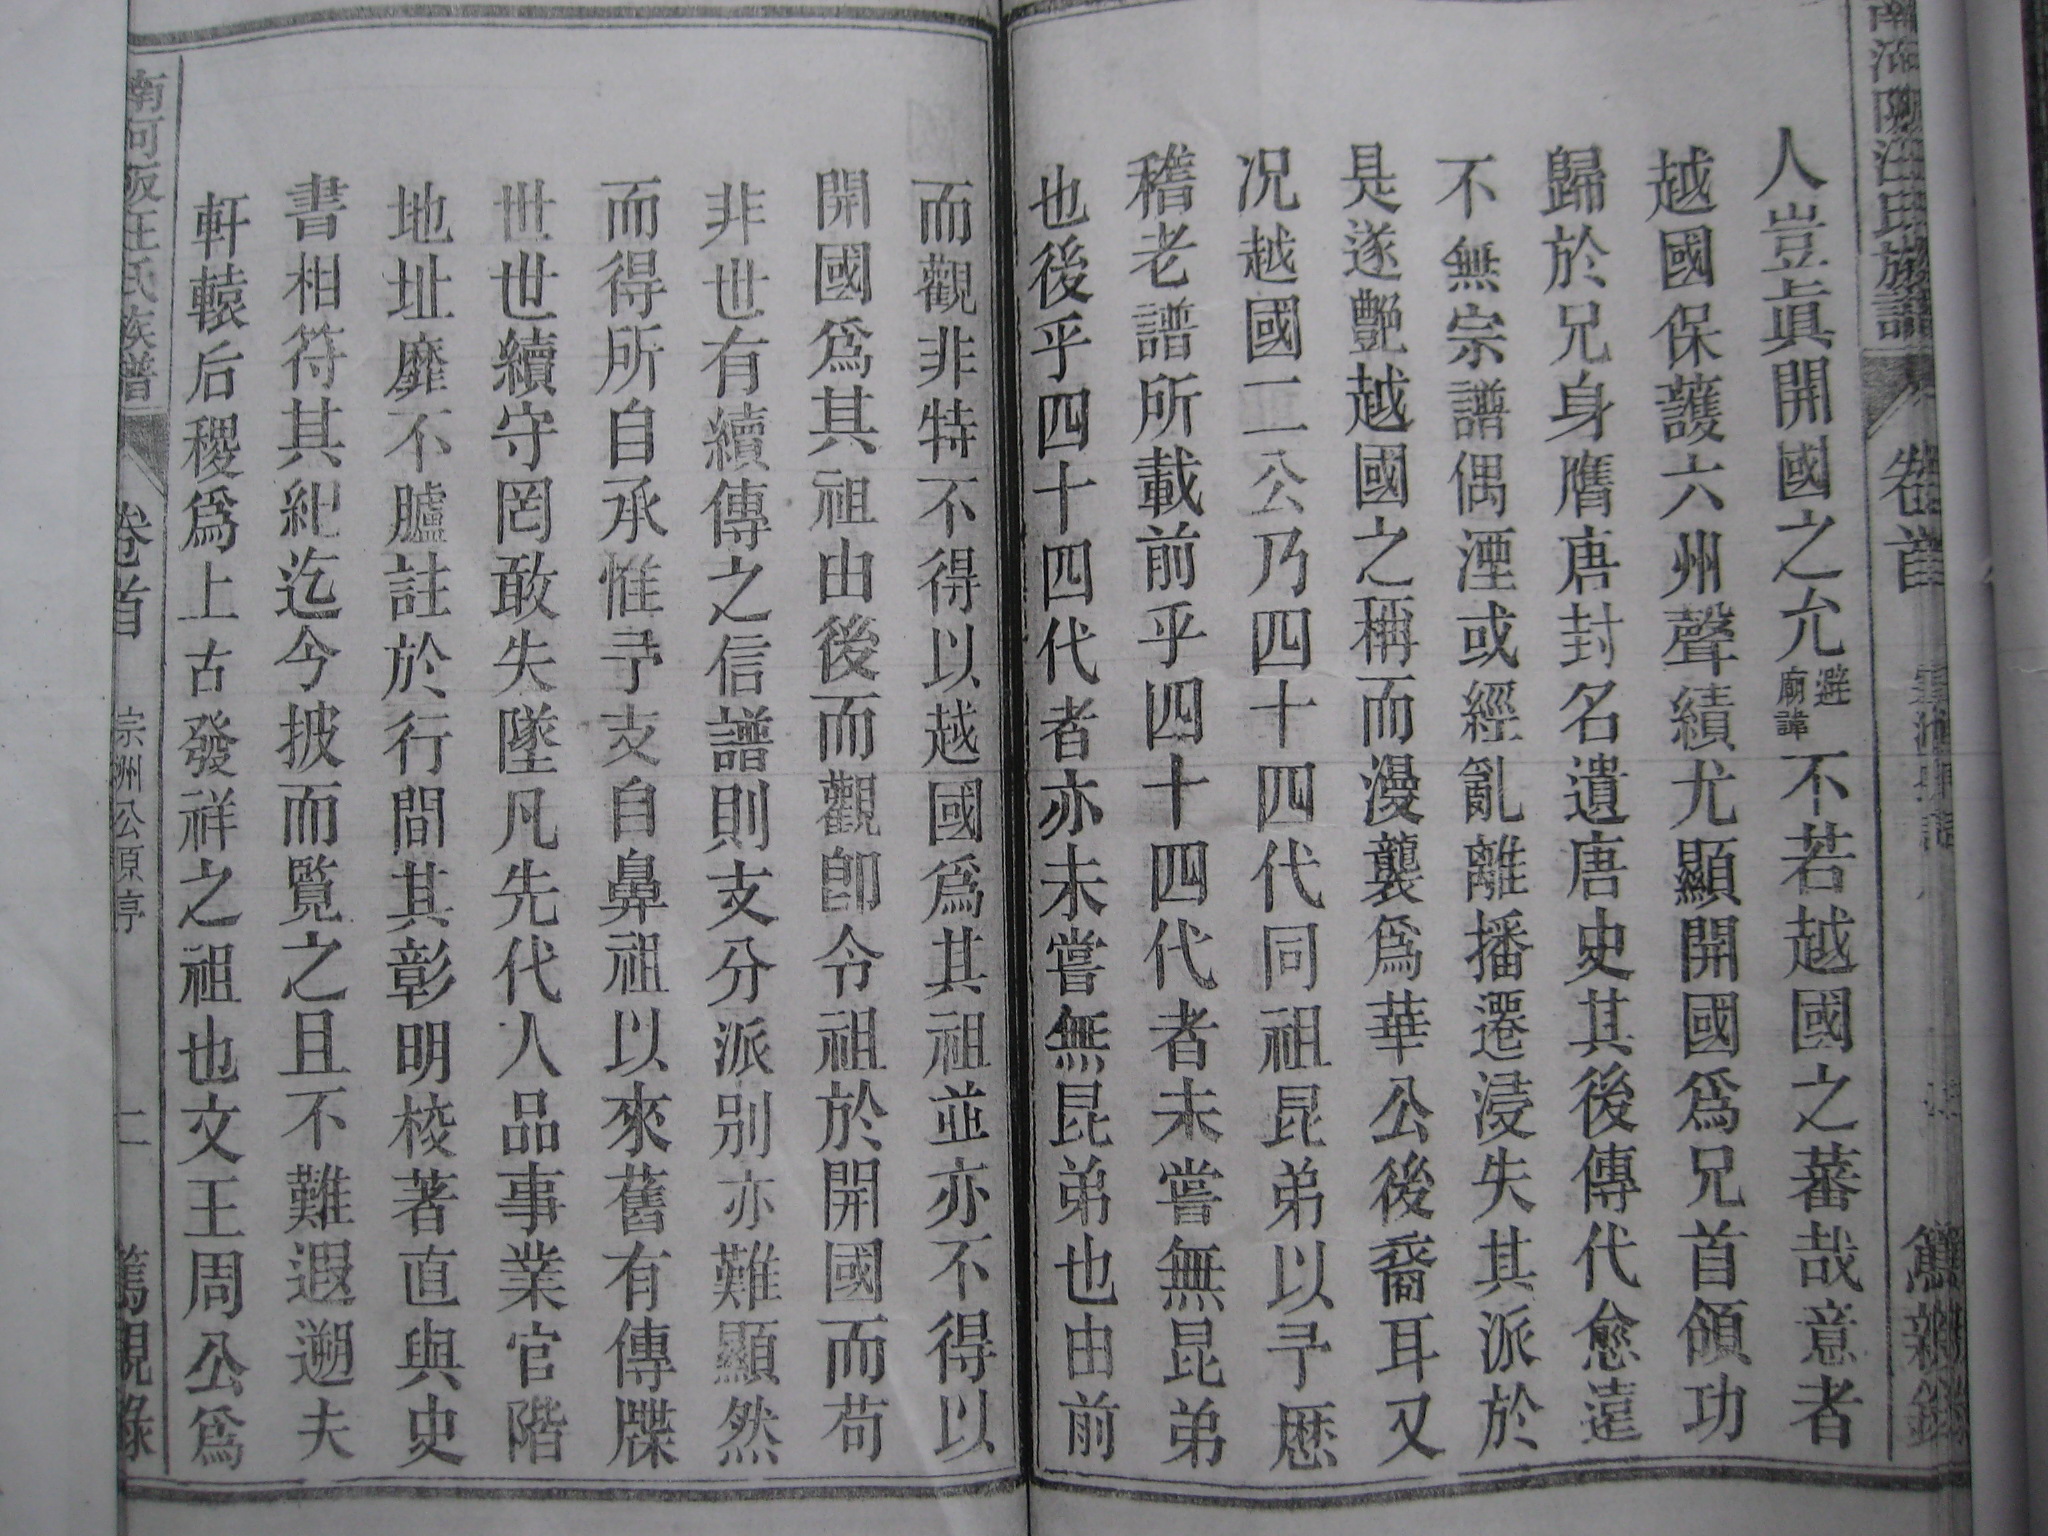 卷首
人豈眞開國之允避廟諱不若越國之蕃哉意者
越國保護六州聲績尤顯開國爲兄首領功
歸於兄身膺唐封名遺唐史其後傳代愈遠
不無宗譜偶湮或經亂離播遷浸失其派於
是遂艷越國之稱而漫襲爲華公後裔耳又
况越國二公乃四十四代同祖昆弟以予歷
稽老譜所載前乎四十四代者未嘗無昆弟
也後乎四十四代者亦未嘗無昆弟也由前
而觀非特不得以越國爲其祖並亦不得以
開國爲其祖由後而觀卽令祖於開國而苟
非世有續傳之信譜則支分派别亦難顯然
而得所自承惟予支自鼻祖以來舊有傳牒
世世續守罔敢失墜凡先代人品事業官階
地址靡不臚註於行間其彰明校著直與史
書相符其紀迄今披而覽之且不難遐遡夫
軒轅后稷爲上古發祥之祖也文王周公爲
南河阪汪氏族譜 卷首 宗洲公原序 二 篤親錄